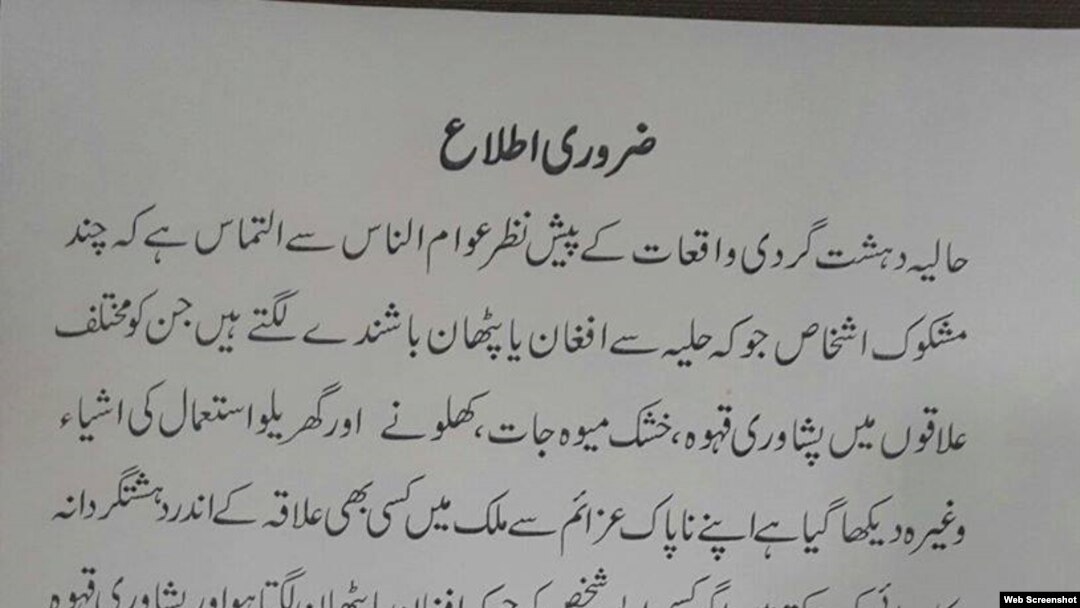 ضروری اطلاع
حالیہ دہشت گردی واقعات کے پیش نظر عوام الناس سے التماس ہے کہ چند
مشکوک اشخاص جو کہ حلیہ سے افغان یا پٹھان باشندے لگتے ہیں جن کو مختلف
علاقوں میں پشاوری قہوہ، خشک میوہ جات، کھلونے اور گھریلو استعمال کی اشیاء
وغیرہ دیکھا گیا ہے اپنے ناپاک عزائم سے ملک میں کسی بھی علاقہ کے اندر دہشتگردانہ
شخص کہ جو کہ افغان یا پٹھان لگتا ہو اور پشاوری قہوہ
Web Screenshot